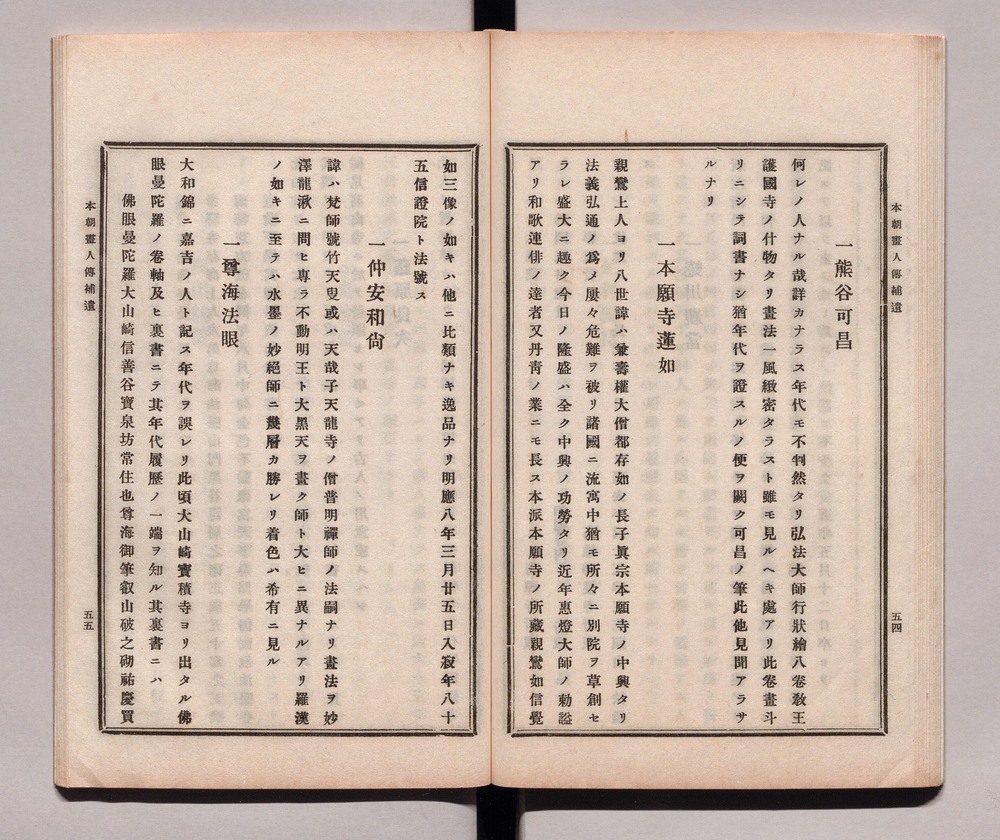 本朝畫人傳補遺
五四
一熊谷可昌
何レノ人ナル哉詳カナラス年代モ不判然タリ弘法大師行狀繪八卷敎王
護國寺ノ什物タリ畫法一風緻密タラスト雖モ見ルヘキ處アリ此卷畫斗
リニシテ詞書ナシ猶年代ヲ證スルノ便ヲ闕ク可昌ノ筆此他見聞アラサ
ルナリ
一本願寺蓮如
親鸞上人ヨリ八世諱ハ兼壽權大僧都存如ノ長子眞宗本願寺ノ中興タリ
法義弘通ノ爲メ屢々危難ヲ被リ諸國ニ流寓中猶モ所々ニ別院ヲ草創セ
ラレ盛大ニ趣ク今日ノ隆盛ハ全ク中興ノ功勞タリ近年惠燈大師ノ勅謚
アリ和歌連俳ノ達者又丹靑ノ業ニモ長ス本派本願寺ノ所藏親鸞如信覺
如三像ノ如キハ他ニ比類ナキ逸品ナリ明應八年三月廿五日入寂年八十
五信證院ト法號ス
一仲安和尙
諱ハ梵師號竹天叟或ハ天哉子天龍寺ノ僧普明禪師ノ法嗣ナリ畫法ヲ妙
澤龍湫ニ問ヒ専ラ不動明王ト大黑天ヲ畫ク師ト大ヒニ異ナルアリ羅漢
ノ如キニ至テハ水墨ノ妙絕師ニ幾層カ勝レリ着色ハ希有ニ見ル
一尊海法眼
大和錦ニ嘉吉ノ人ト記ス年代ヲ誤レリ此頃大山崎寶積寺ヨリ出タル佛
眼曼陀羅ノ卷軸及ヒ裏書ニテ其年代履歷ノ一端ヲ知ル其裏書ニハ
佛眼曼陀羅大山崎信善谷寶泉坊常住也尊海御筆叡山破之砌祐慶買
本朝畫人傳補遺
五五